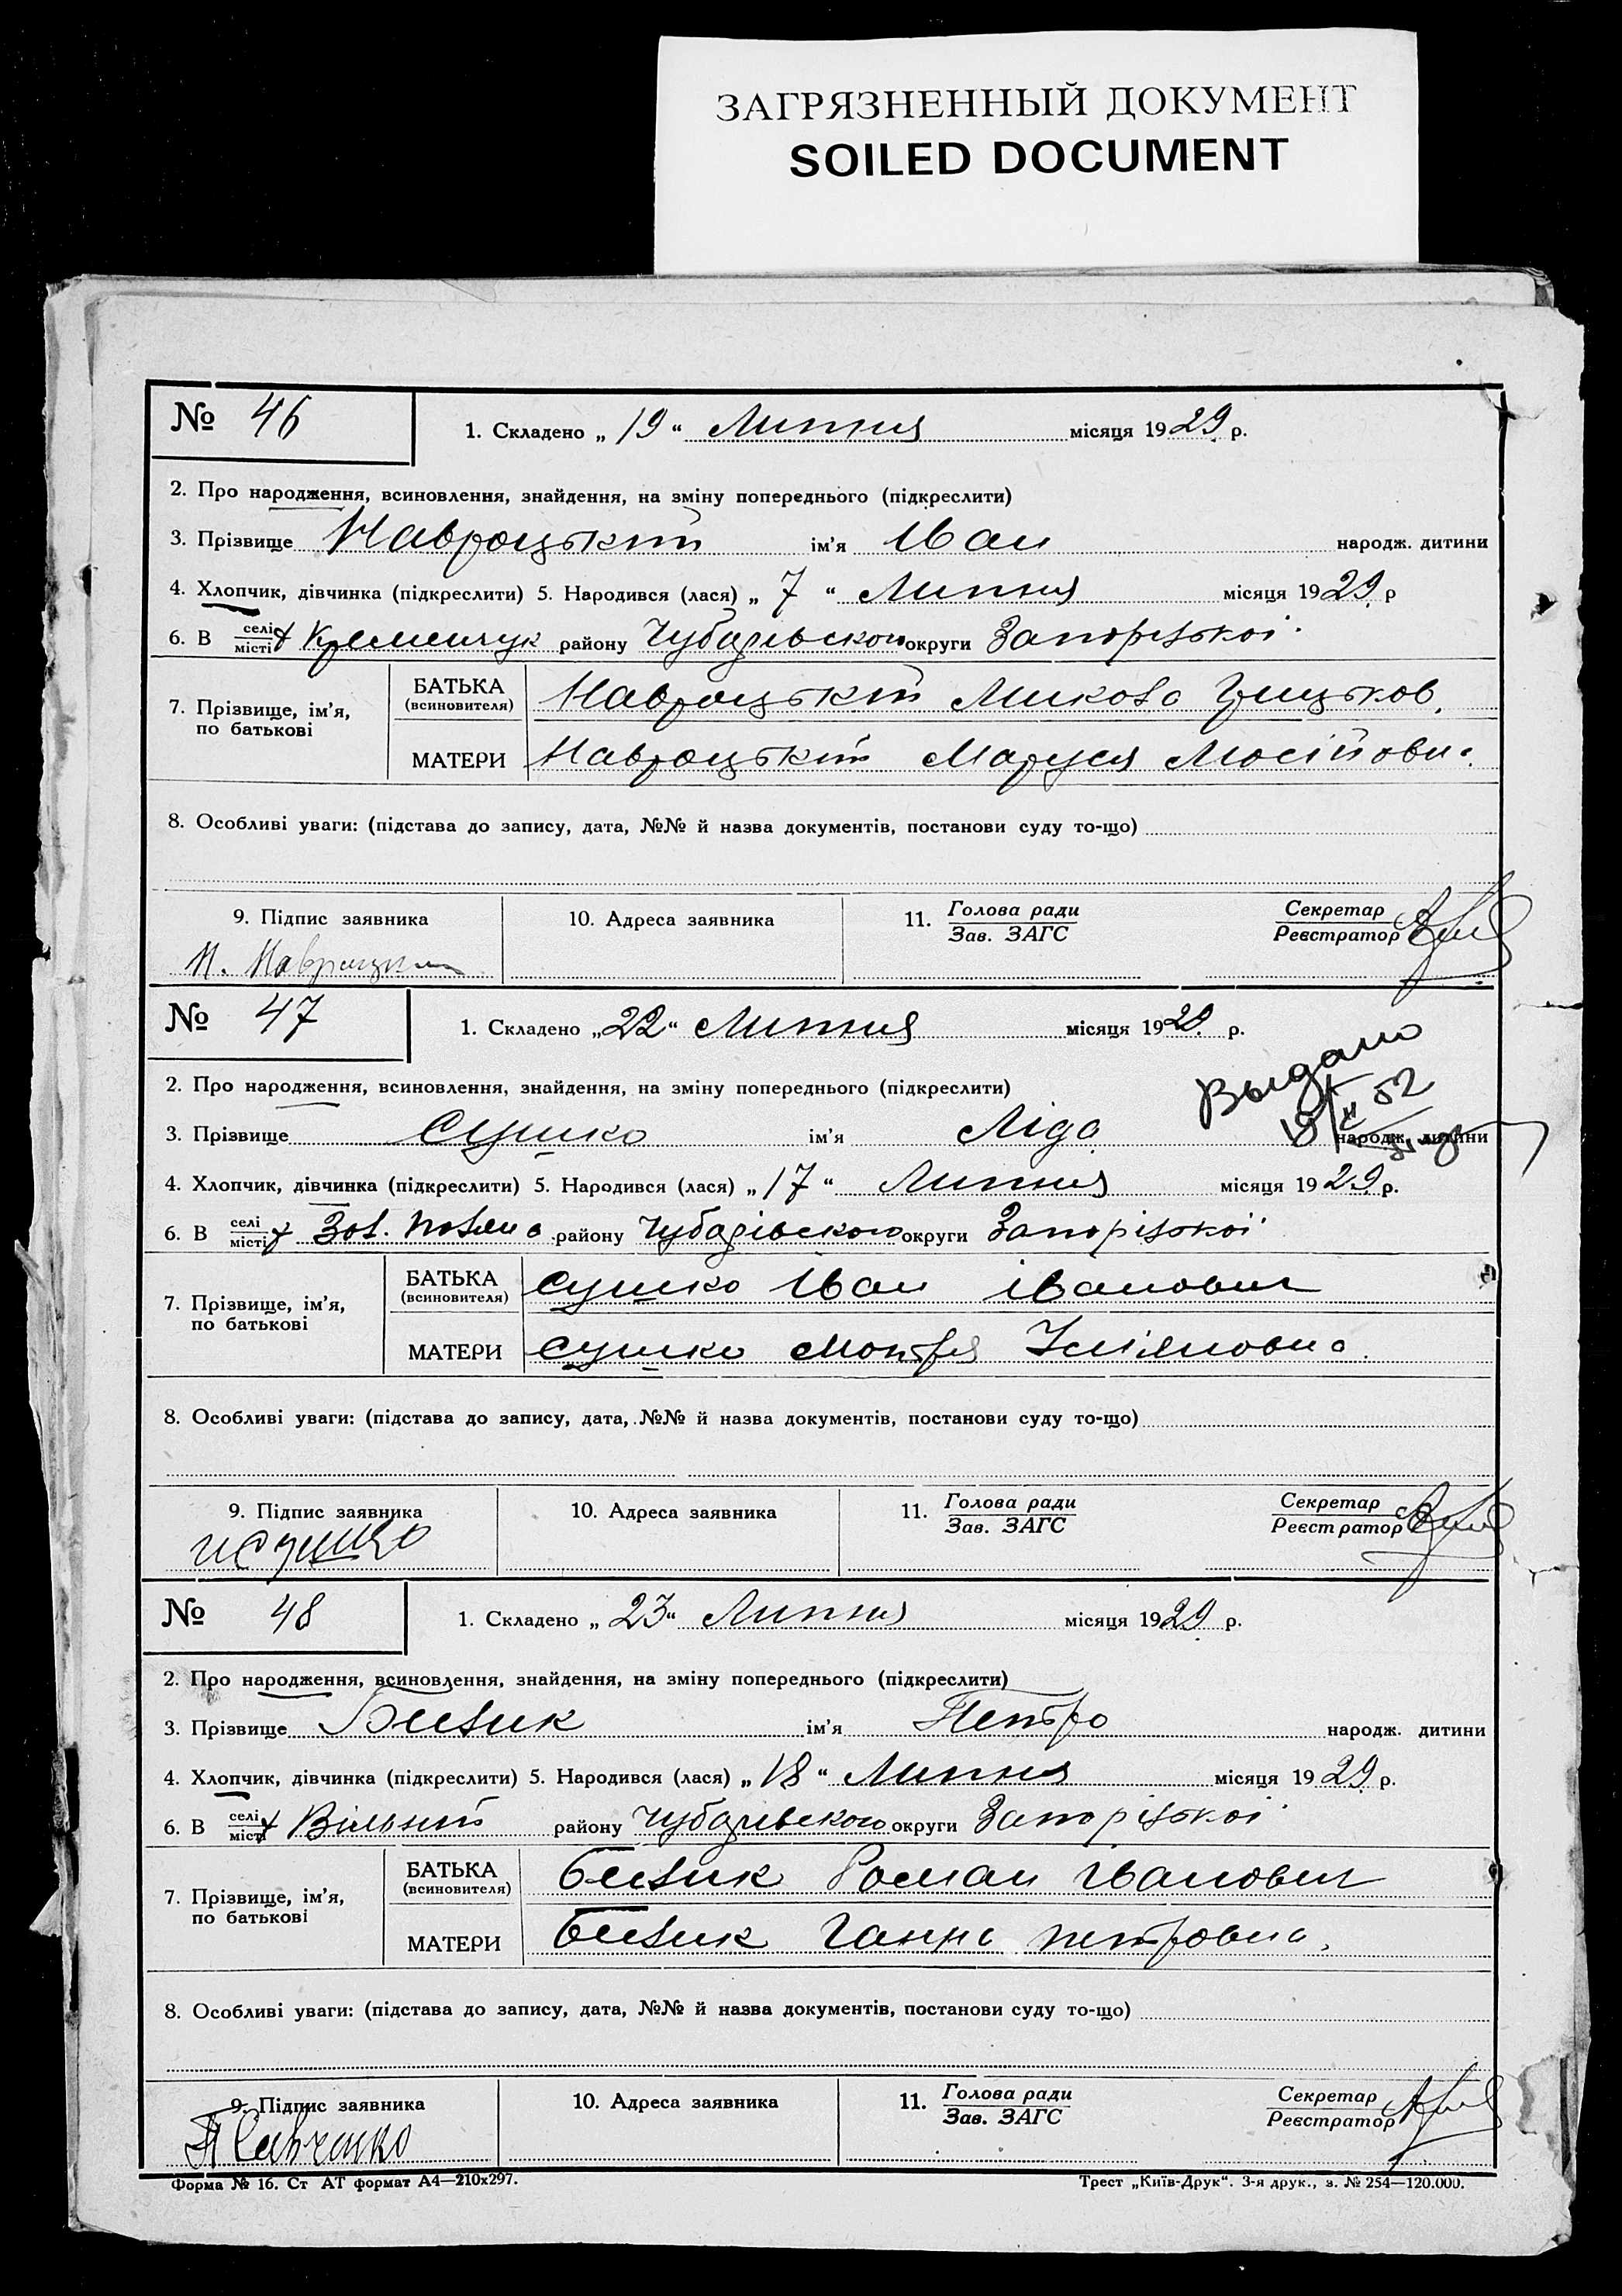 ЗАГРЯЗНЕННЫЙ ДОКУМЕНТ
SOILED DOCUMENT
№ 46
1. Складено „19“ Липня місяця 1929 р.
2. Про народження, всиновлення, знайдення, на зміну попереднього (підкреслити)
3. Прізвище Навроцький ім'я Іван народж. дитини
4. Хлопчик, дівчинка (підкреслити) 5. Народився (лася) „7“ Липня місяця 1929 р
6. В селі місті Кременчук району Чубарівського округи Запорізької
7. Прізвище, ім'я, по батькові
БАТЬКА (всиновителя) Навроцькій Микола Грицьков.
МАТЕРИ Навроцькій Маруся Мосійовна
8. Особливі уваги: (підстава до запису, дата, №№ й назва документів, постанови суду то-що)
9. Підпис заявника 10. Адреса заявника 11. Голова ради Зав. ЗАГС Секретар Реєстратор
№ 47
1. Складено „22“ Липня місяця 1929 р.
Выдано
2. Про народження, всиновлення, знайдення, на зміну попереднього (підкреслити)
3. Прізвище Сушко ім'я Ліда народж. дитини
4. Хлопчик, дівчинка (підкреслити) 5. Народився (лася) „17“ Липня місяця 1929 р.
6. В селі місті Зол. Поляна району Чубарівського округи Запорізької
7. Прізвище, ім'я, по батькові
БАТЬКА (всиновителя) Сушко Іван Іванович
МАТЕРИ Сушко Мотря
8. Особливі уваги: (підстава до запису, дата, №№ й назва документів, постанови суду то-що)
9. Підпис заявника 10. Адреса заявника 11. Голова ради Зав. ЗАГС Секретар Реєстратор
И Сушко
№ 48
1. Складено „23“ Липня місяця 1929 р.
2. Про народження, всиновлення, знайдення, на зміну попереднього (підкреслити)
3. Прізвище Билик ім'я Петро народж. дитини
4. Хлопчик, дівчинка (підкреслити) 5. Народився (лася) „18“ Липня місяця 1929 р.
6. В селі місті Вільний району Чубарівського округи Запорізької
7. Прізвище, ім'я, по батькові
БАТЬКА (всиновителя) Билик Роман Іванович
МАТЕРИ Билик Ганна Петровна
8. Особливі уваги: (підстава до запису, дата, №№ й назва документів, постанови суду то-що)
9. Підпис заявника 10. Адреса заявника 11. Голова ради Зав. ЗАГС Секретар Реєстратор
Савченко
Форма № 16. Ст АТ формат А4—210х297. Трест „Київ-Друк“. 3-я друк., з. № 254—120.000.